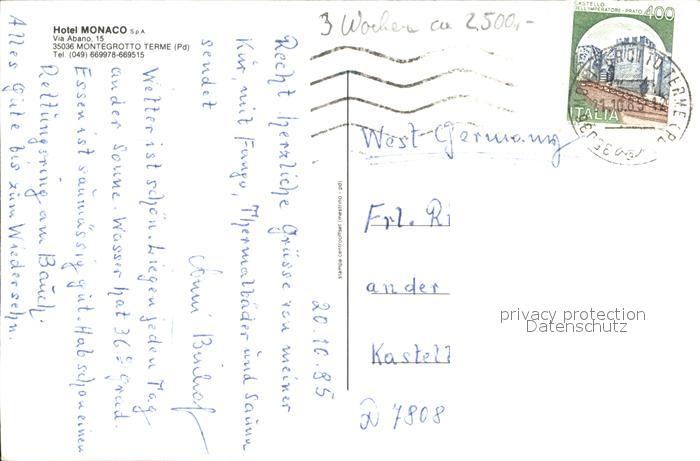 Hotel MONACO SpA
Via Abano, 15
35036 MONTEGROTTO TERME (Pd)
Tel. (049) 669978-669515
3 Wochen ca 2,500,-
CASTELLO
DELL'IMPERATORE - PRATO
400
ITALIA
20.10.85
Recht herzliche Grüsse von meiner
Kur, mit Fango, Thermalbäder und Sauna
sendet
Wetter ist schön. Liegen jeden Tag
an der Sonne. Wasser hat 36° grad.
Essen ist saumässig gut. Hab schon einen
Rettungsring am Bauch.
Alles Gute bis zum Wiedersehn.
West Germanny
Frl. Ri
an der
Kastell
D 7808
privacy protection
Datenschutz